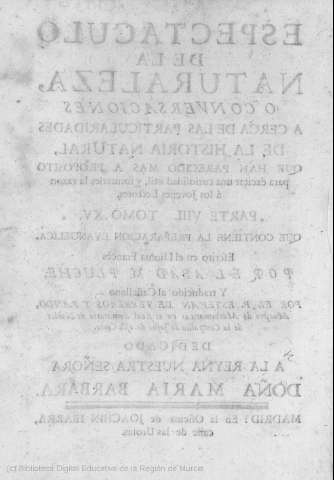 ESPECTACULO
DE LA
NATURALEZA,
O CONVERSACIONES
A CERCA DE LAS PARTICULARIDADES
DE LA HISTORIA NATURAL,
QUE HAN PARECIDO MAS A PROPOSITO
para excitar una curiosidad util, y formarles la razon
à los Jovenes Lectores.
PARTE VIII. TOMO XV.
QUE CONTIENE LA PREPARACION EVANGELICA.
Escrito en el Idioma Francès
POR EL ABAD M. PLUCHE,
Y traducido al Castellano
POR EL P. ESTEVAN DE TERREROS Y PANDO,
Maestro de Mathematicas en el Real Seminario de Nobles
de la Compañia de Jesus de esta Corte.
DEDICADO
A LA REYNA NUESTRA SEÑORA
DOÑA MARIA BARBARA.
MADRID: En la Oficina de JOACHIN IBARRA,
calle de las Urosas.
(c) Biblioteca Digital Educativa de la Región de Murcia